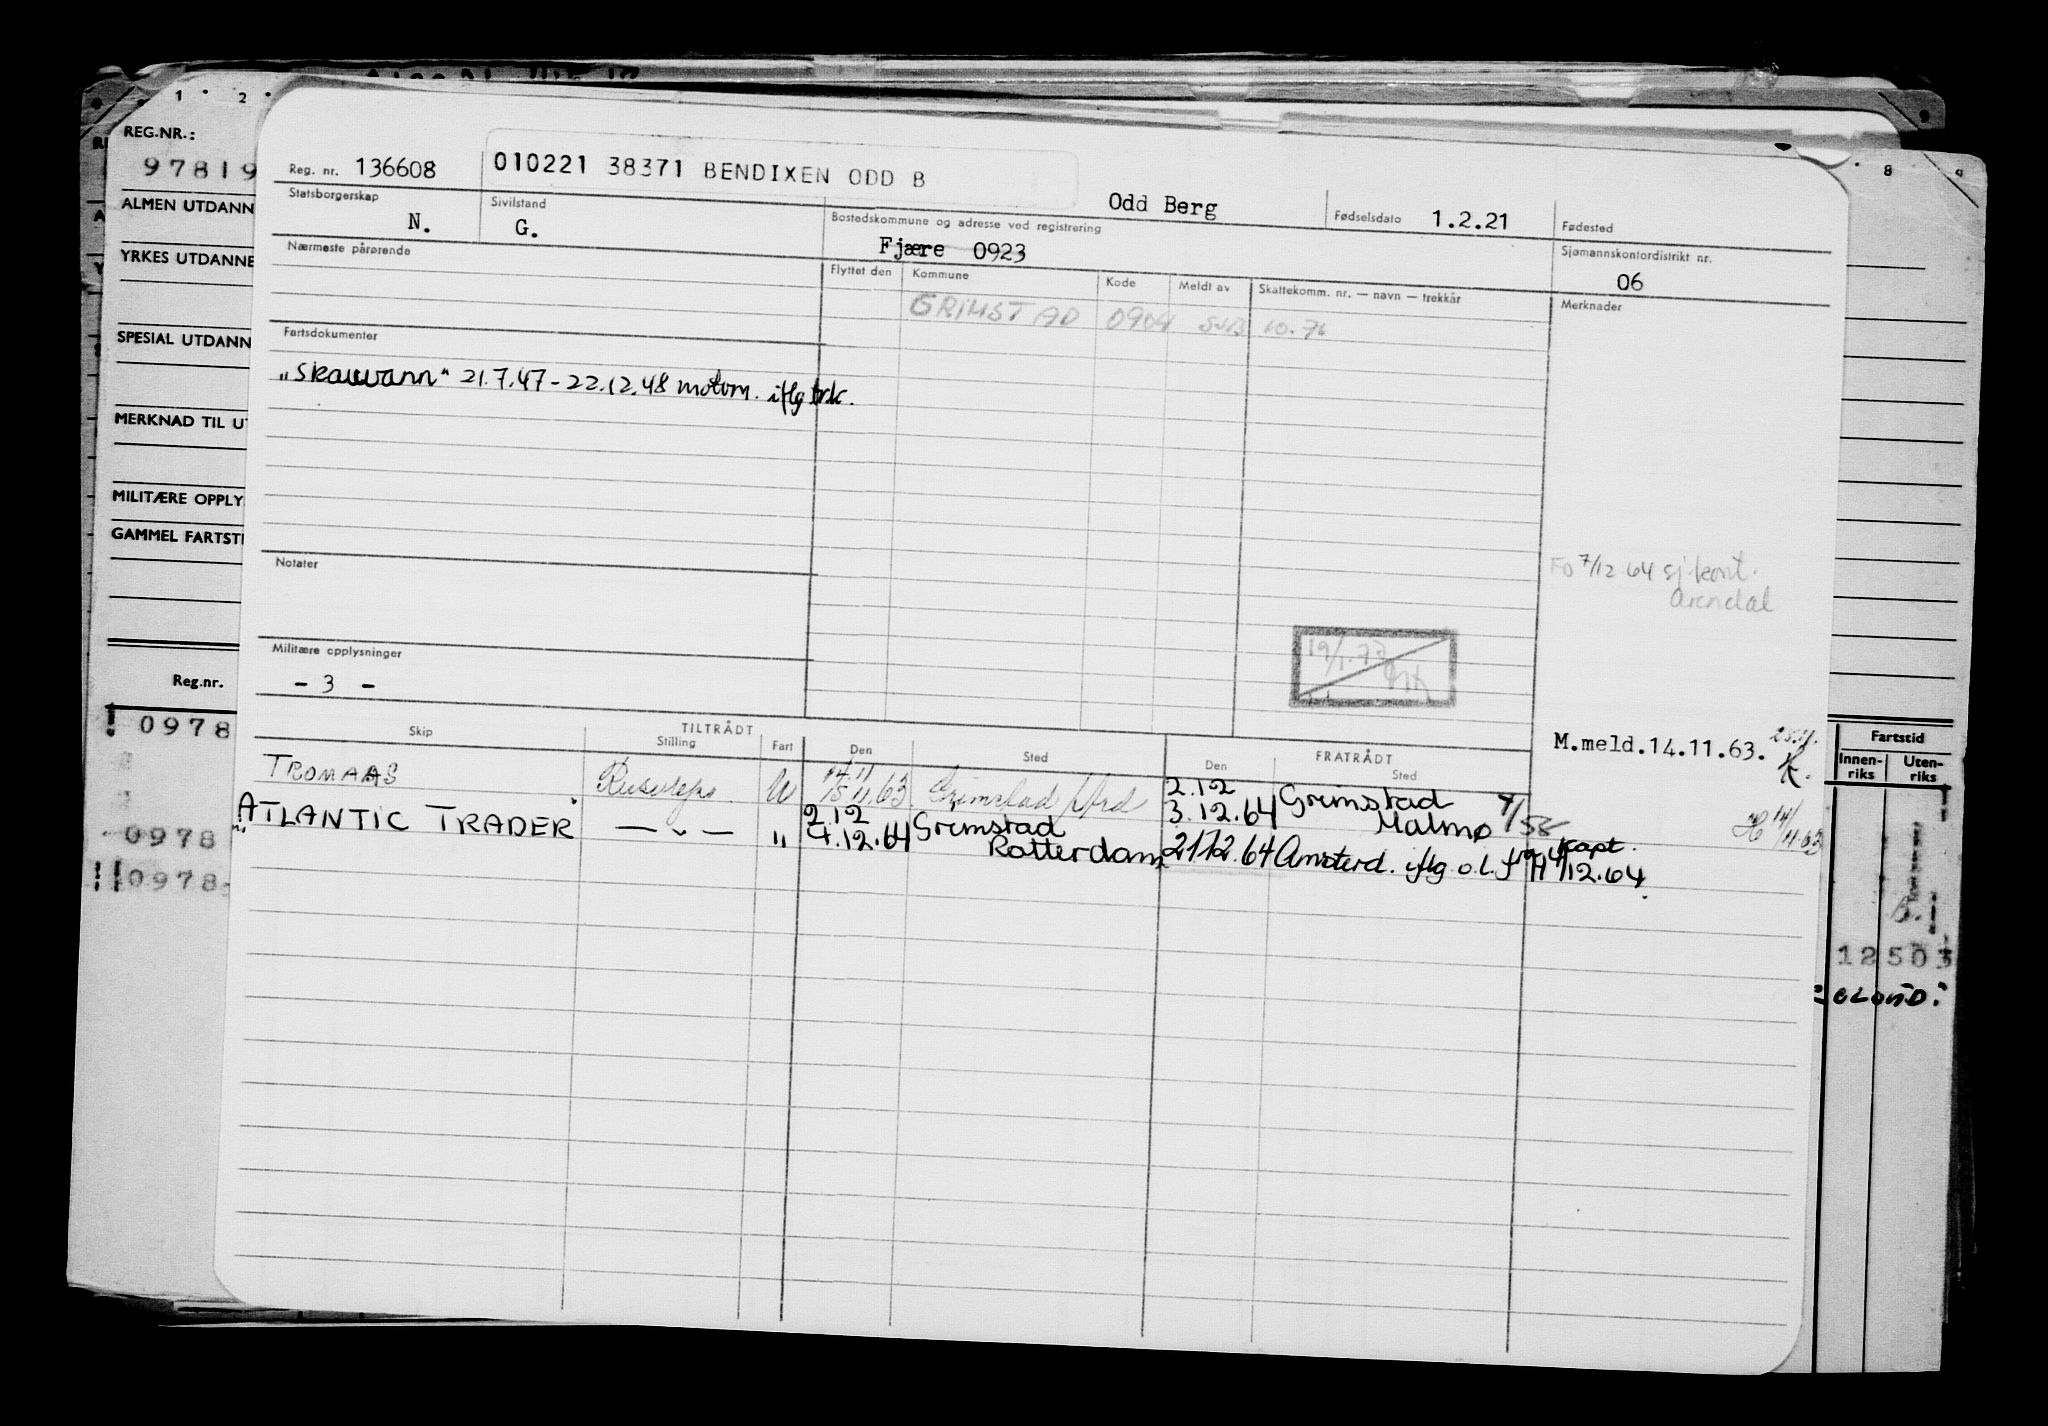 1 2
REG.NR.:
97819
ALMEN UTDANN
YRKES UTDANNE
SPESIAL UTDANN
MERKNAD TIL UT
MILITÆRE OPPLY
GAMMEL FARTSTI
Reg.nr.
! 0978
0978
!! 0978
8 9
Reg. nr. 136608 010221 38371 BENDIXEN ODD B Odd Berg Fødselsdato 1.2.21 Fødested
Statsborgerskap N. Sivilstand G. Bostedskommune og adresse ved registrering Fjære 0923 Sjømannskontordistrikt nr. 06
Nærmeste pårørende Flyttet den Kommune Kode Meldt av Skattekomm. nr. — navn — trekkår Merknader
GRIMSTAD 0904 10.76
Fartsdokumenter
"Skauvann" 21.7.47 - 22.12.48 motom. iflg brk.
Notater
Fo 7/12 64 sj.kont.
Arendal
19/1.73
Militære opplysninger
- 3 -
M.meld.14.11.63.
TILTRÅDT FRATRÅDT
Skip Stilling Fart Den Sted Den Sted
TROMAAS U 14.11 15.11.63 Grimstad 2.12 3.12.64 Grimstad Malmø
ATLANTIC TRADER — " — " 2.12 4.12.64 Grimstad Rotterdam 21.12.64 Amsterd. iflg o.l. fra kapt. 12.64
14/11.63
Fartstid
Innen-riks Uten-riks
12503